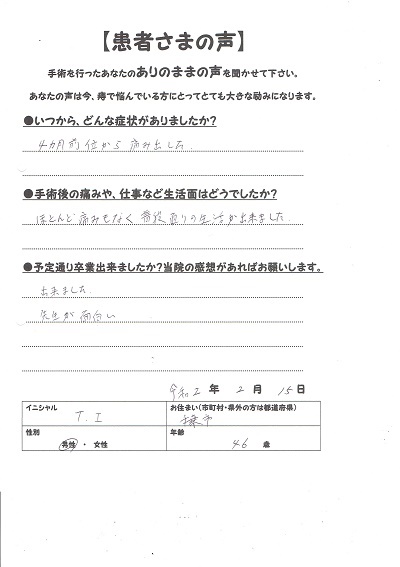 【患者さまの声】
手術を行ったあなたのありのままの声を聞かせて下さい。
あなたの声は今、痔で悩んでいる方にとってとても大きな励みになります。
●いつから、どんな症状がありましたか?
4カ月前位から 痛み出した
●手術後の痛みや、仕事など生活面はどうでしたか?
ほとんど痛みもなく 普段通りの生活が出来ました。
●予定通り卒業出来ましたか?当院の感想があればお願いします。
出来ました
先生が面白い
令和2 年 2 月 15 日
イニシャル
T. I
お住まい(市町村・県外の方は都道府県)
市
性別
男性 ・ 女性
年齢
46 歳